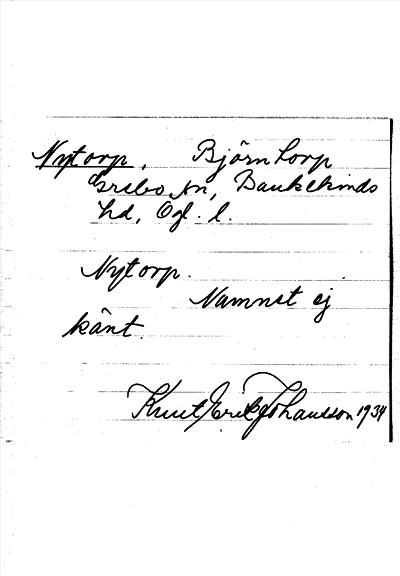 Nytorp, Björntorp
Grebo sn, Bankekinds
hd, Ögl. l.
Nytorp.
Namnet ej
känt.
Knut Erik Johansson 1934